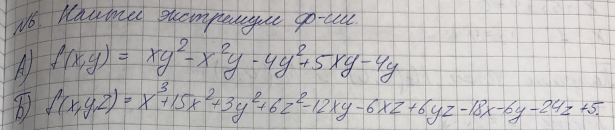 №6. Найти экстремум ф-ии.
А) f(x,y) = xy² - x²y - 4y² + 5xy - 4y
Б) f(x,y,z) = x³ + 15x² + 3y² + 6z² - 12xy - 6xz + 6yz - 18x - 6y - 24z + 5.